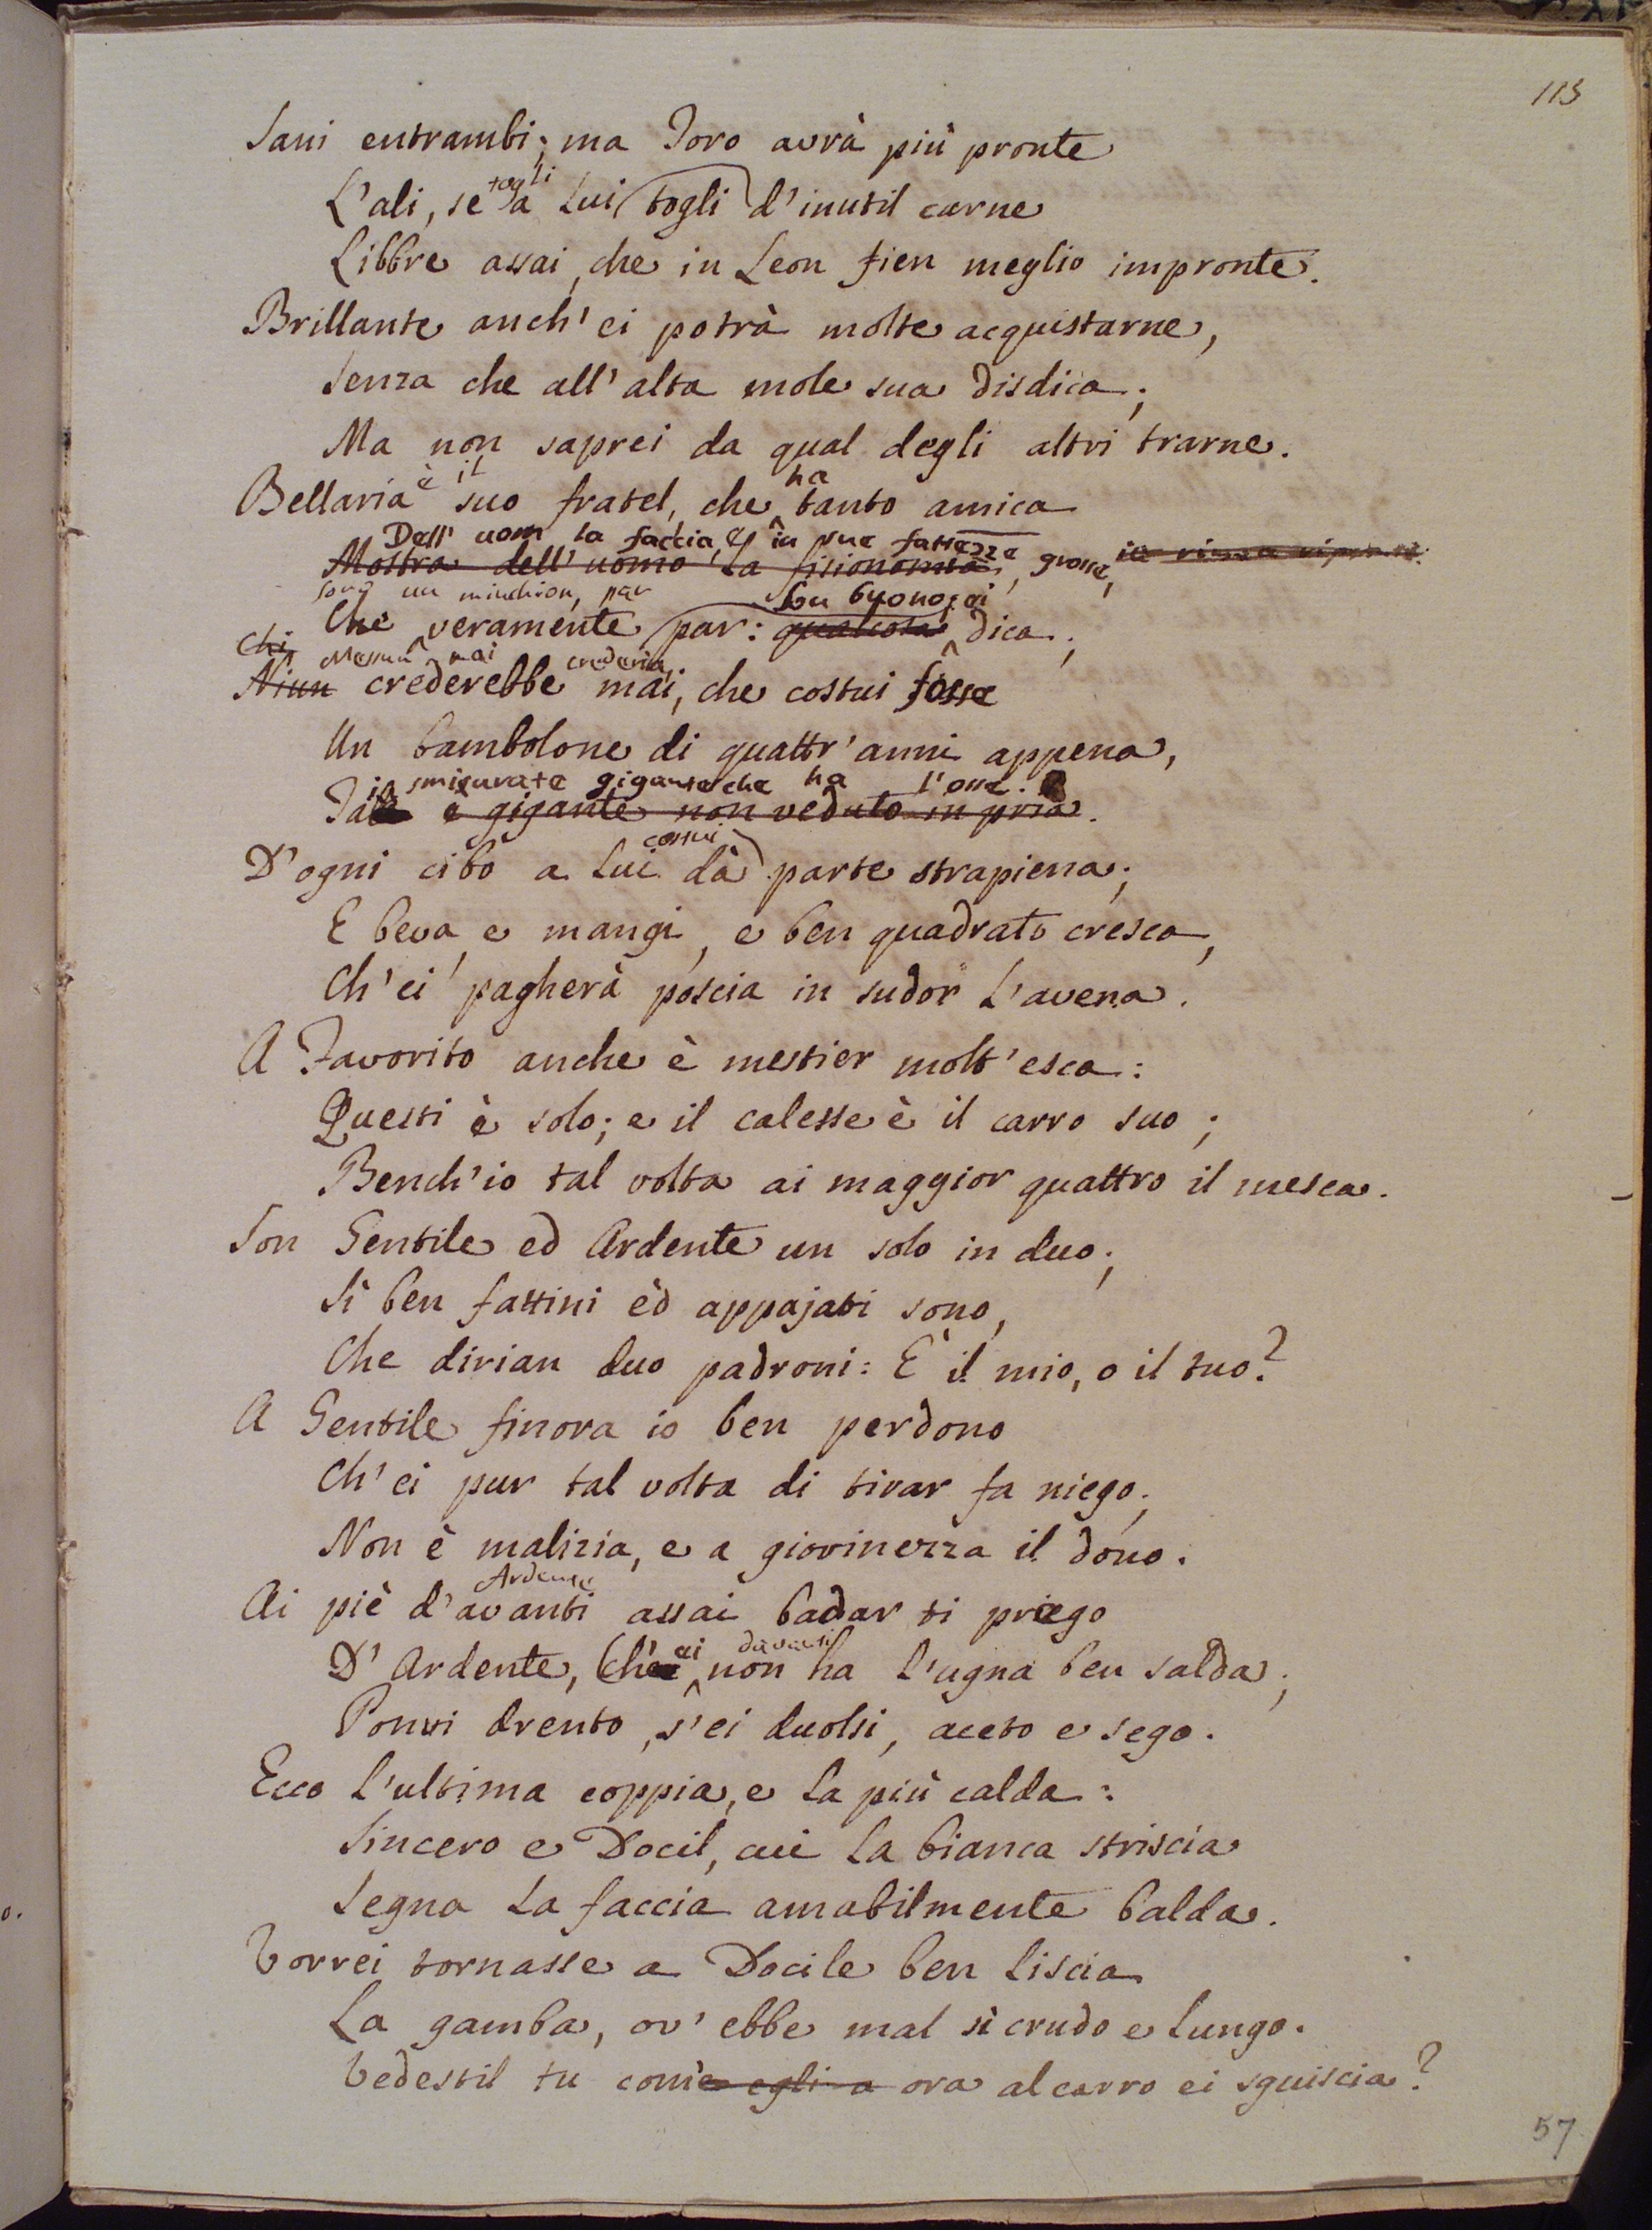 113
Sani entrambi; ma Toro avrà più pronte
togli
L'ali, se a Lui togli d'inutil carne
Libbre assai, che in Leon fien meglio impronte.
Brillante anch'ei potrà molte acquistarne,
Senza che all'alta mole sua disdica;
Ma non saprei da qual degli altri trarne.
è il ha
Bellaria suo fratel, che tanto amica
Dell' uom la faccia, e in sue fattezze grosse,
Mostra dell'uomo la fisionomia,
sorg un minchion, par bu buono, ei
Che veramente par: qualcosa dica;
Chi Nessun mai crederia,
Niun crederebbe mai, che costui fosse
Un bambolone di quattr'anni appena,
sì smisurate gigantesche ha l'osse.
Tale e gigante non veduto in pria.
costui
D'ogni cibo a Lui dà parte strapiena;
E beva e mangi, e ben quadrato cresca,
Ch'ei pagherà poscia in sudor l'avena.
A Favorito anche è mestier molt'esca:
Questi è solo; e il calesse è il carro suo;
Bench'io tal volta ai maggior quattro il mesca.
Son Gentile ed Ardente un solo in duo;
Sì ben fattini ed appajati sono,
Che dirian duo padroni: È il mio, o il tuo?
A Gentile finora io ben perdono
Ch'ei pur tal volta di tirar fa niego;
Non è malizia, e a giovinezza il dono.
Ardente
Ai piè d'avanti assai badar ti priego
ei davanti
D'Ardente, Ch'ei non ha l'ugna ben salda;
Ponvi drento, s'ei duolsi, aceto e sego.
Ecco l'ultima coppia, e la più calda:
Sincero e Docil, cui la bianca striscia
Segna la faccia amabilmente balda.
Vorrei tornasse a Docile ben liscia
La gamba, ov'ebbe mal sì crudo e lungo.
Vedestil tu come egli a ora al carro ei sguiscia?
57